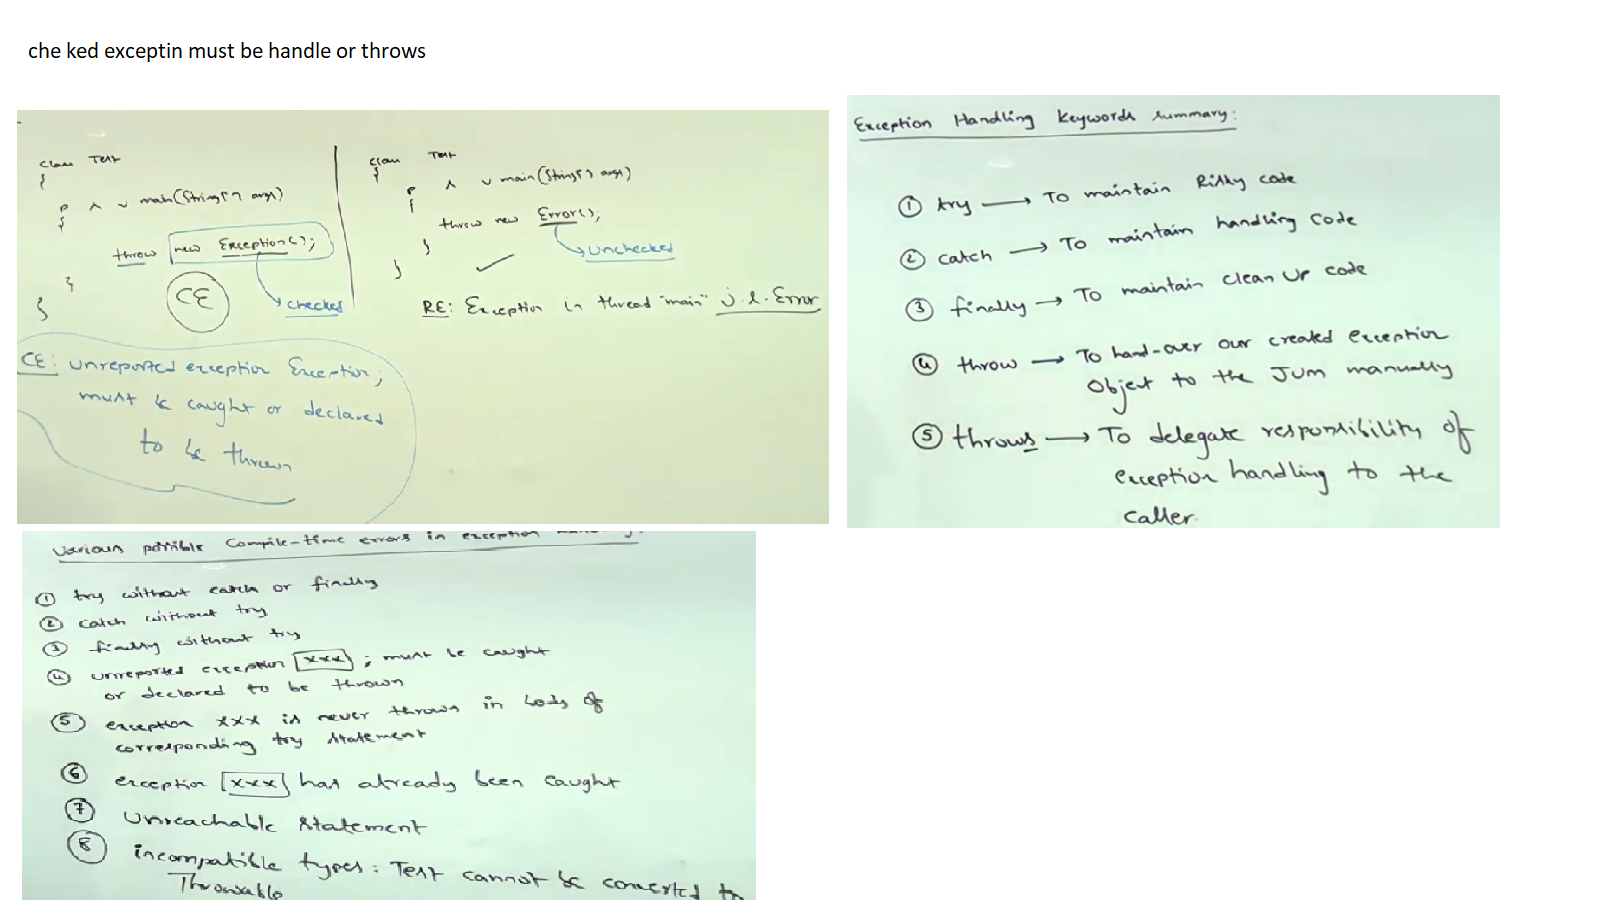 che ked exceptin must be handle or throws
class Test
{
p s v main(String[] args)
{
throw new Exception();
}
}
CE
checked
CE: unreported exception Exception;
must be caught or declared
to be thrown
class Test
{
p s v main(String[] args)
{
throw new Error();
}
}
unchecked
RE: Exception in thread "main" j.l.Error
Exception Handling Keywords summary:
① try → To maintain Risky code
② catch → To maintain handling code
③ finally → To maintain clean up code
④ throw → To hand-over our created exception
object to the JVM manually
⑤ throws → To delegate responsibility of
exception handling to the
caller.
Various possible Compile-time errors in exception
① try without catch or finally
② catch without try
③ finally without try
④ unreported exception xxx; must be caught
or declared to be thrown
⑤ exception xxx is never thrown in body of
corresponding try statement
⑥ exception xxx has already been caught
⑦ unreachable statement
⑧ incompatible types: Test cannot be converted to
Throwable